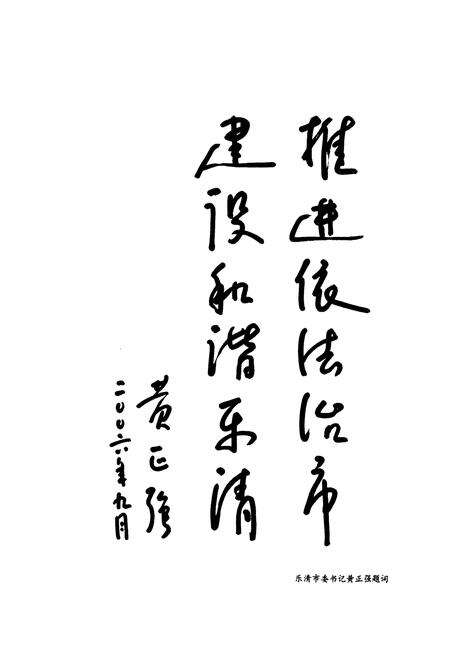 推进依法治市
建设和谐乐清
黄正强
二〇〇六年九月
乐清市委书记黄正强题词